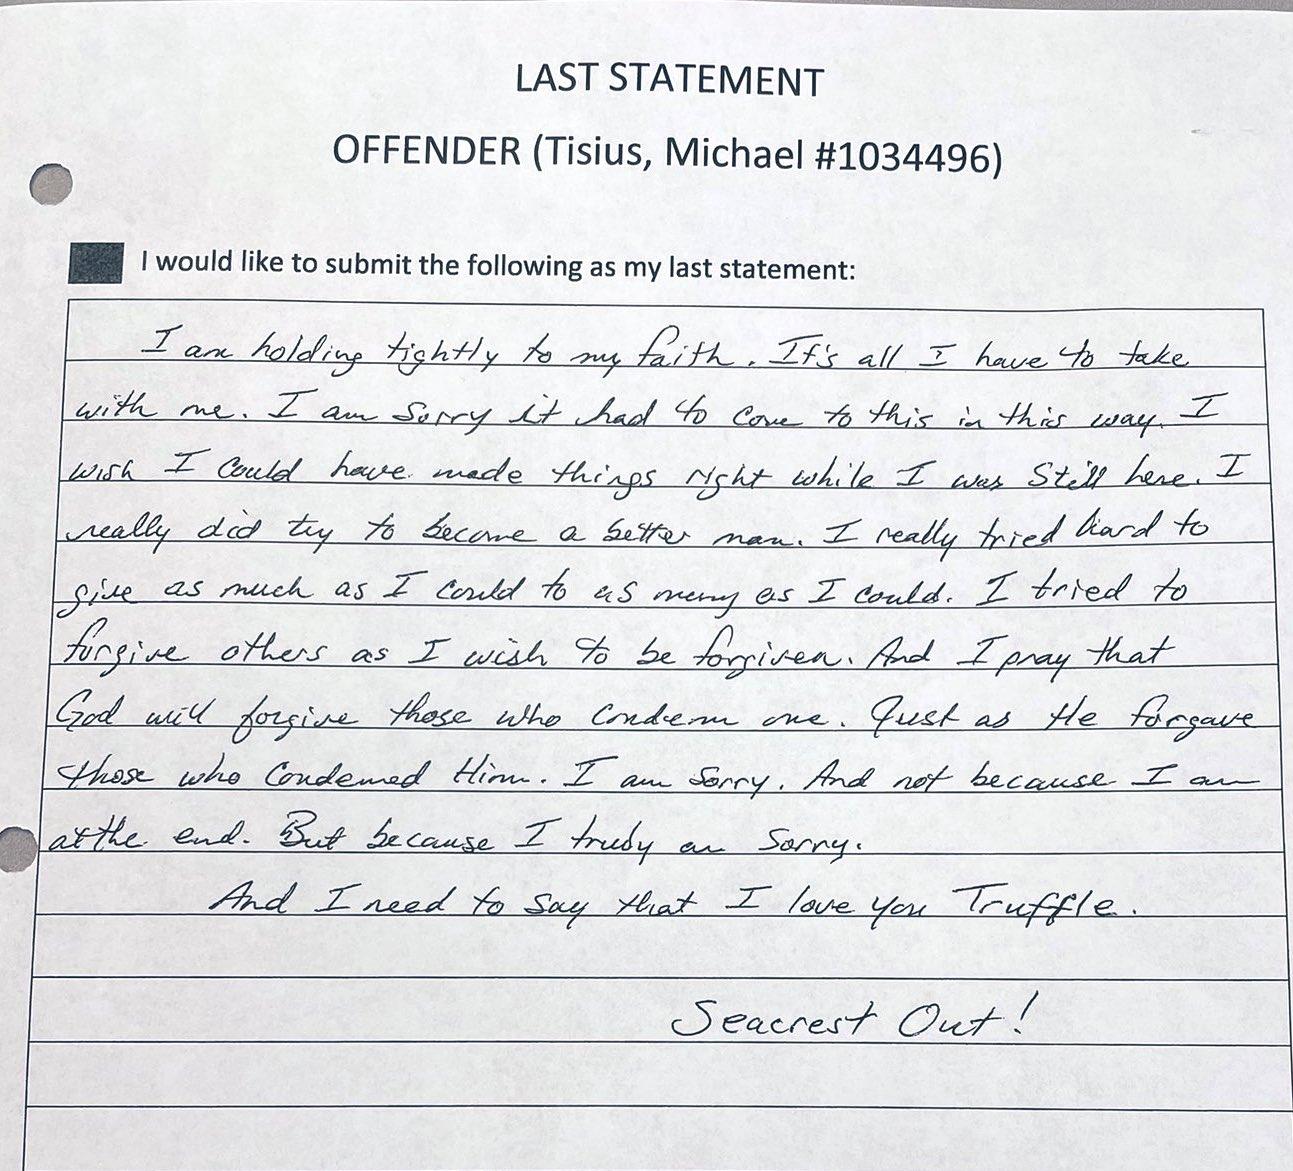 LAST STATEMENT
OFFENDER (Tisius, Michael #1034496)
I would like to submit the following as my last statement:
I am holding tightly to my faith. It's all I have to take
with me. I am sorry it had to come to this in this way. I
wish I could have made things right while I was still here. I
really did try to become a better man. I really tried hard to
give as much as I could to as many as I could. I tried to
forgive others as I wish to be forgiven. And I pray that
God will forgive those who condem me. Just as He forgave
those who condemed Him. I am sorry. And not because I am
at the end. But because I truly am sorry.
And I need to say that I love you Truffle.
Seacrest Out!